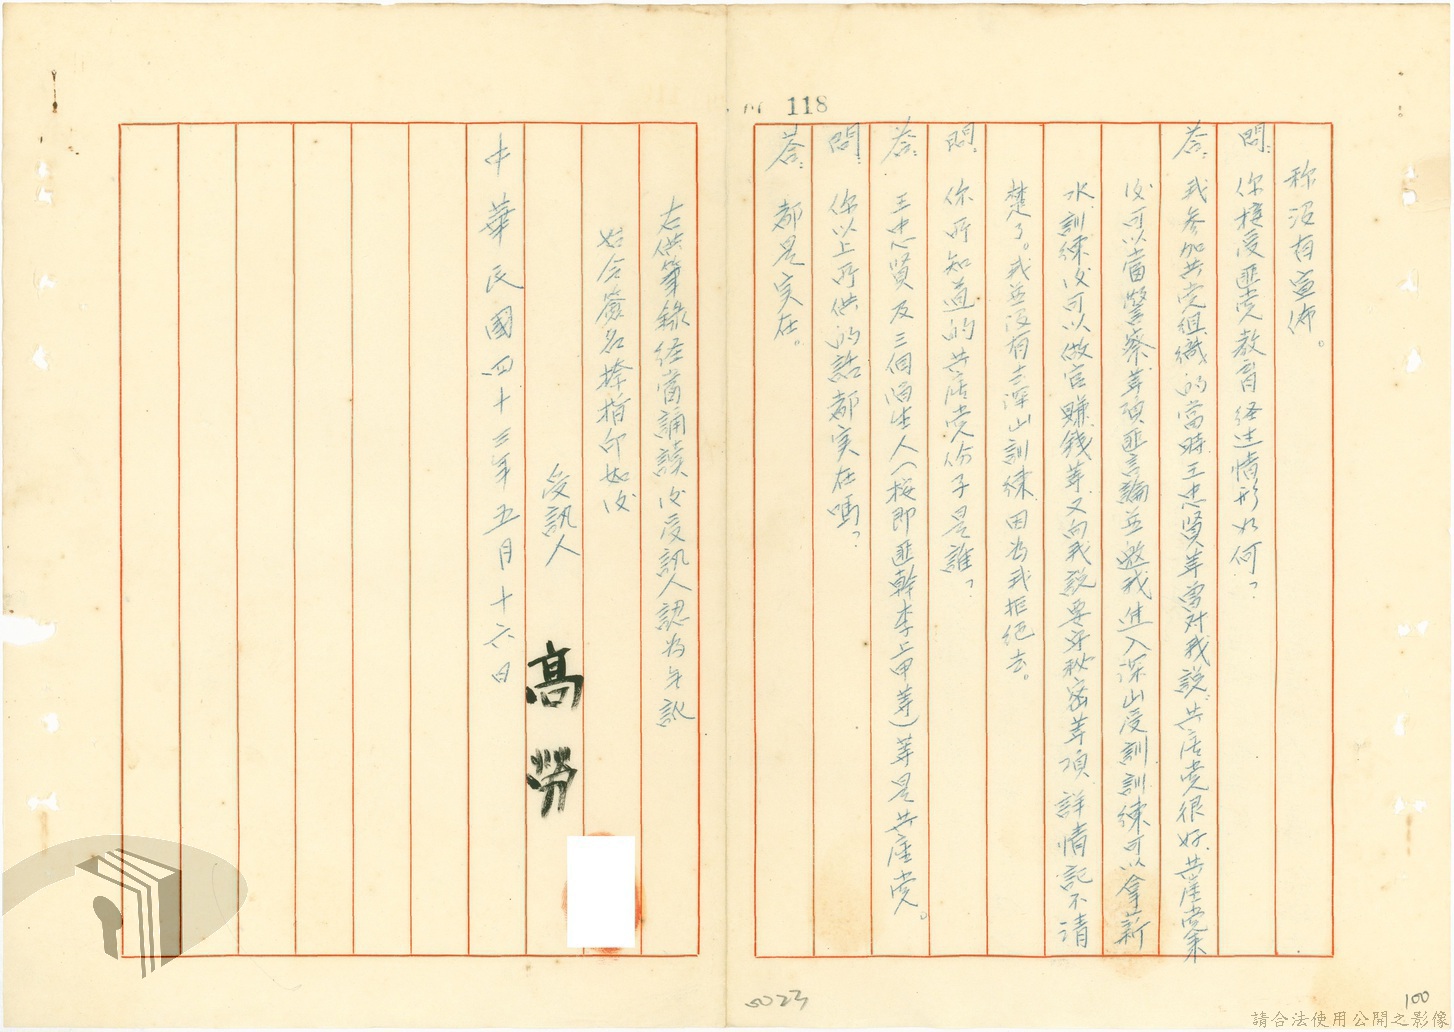 118
称沒有宣佈。
問：你接受匪党教育経过情形如何？
荅：我参加共党組織的當時王忠賢等曾対我說：共産党很好、共産党来
後可以當警察等項匪言論並邀我進入深山受訓訓練可以拿薪
水、訓練後可以做官賺錢等、又向我說要守秘密等項、詳情記不清
楚了。我並没有去深山訓練因為我拒绝去。
問：你所知道的共産党份子是誰？
荅：王忠賢及三個陌生人（按即匪幹李上甲等）等是共産党。
問：你以上所供的話都実在嗎？
荅：都是実在。
右供筆錄経當誦讀後受訊人認為无訛
始令簽名捺指印於後
受訊人 高勞
中華民國四十三年五月十六日
5023
100
請合法使用公開之影像